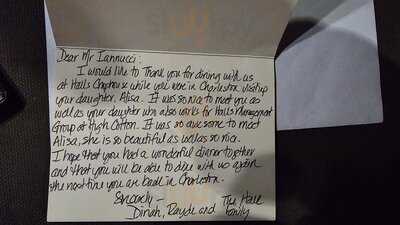 Dear Mr Iannucci:
I would like to thank you for dining with us
at Halls Chophouse while you were in Charleston visiting
your daughter, Alisa. It was so nice to meet you as
well as your daughter who also works for Halls Management
Group at High Cotton. It was so awesome to meet
Alisa, she is so beautiful as well as so nice.
I hope that you had a wonderful dinner together
and that you will be able to dine with us again
the next time you are back in Charleston.
Sincerely -
Dinah, and The Hall
Family